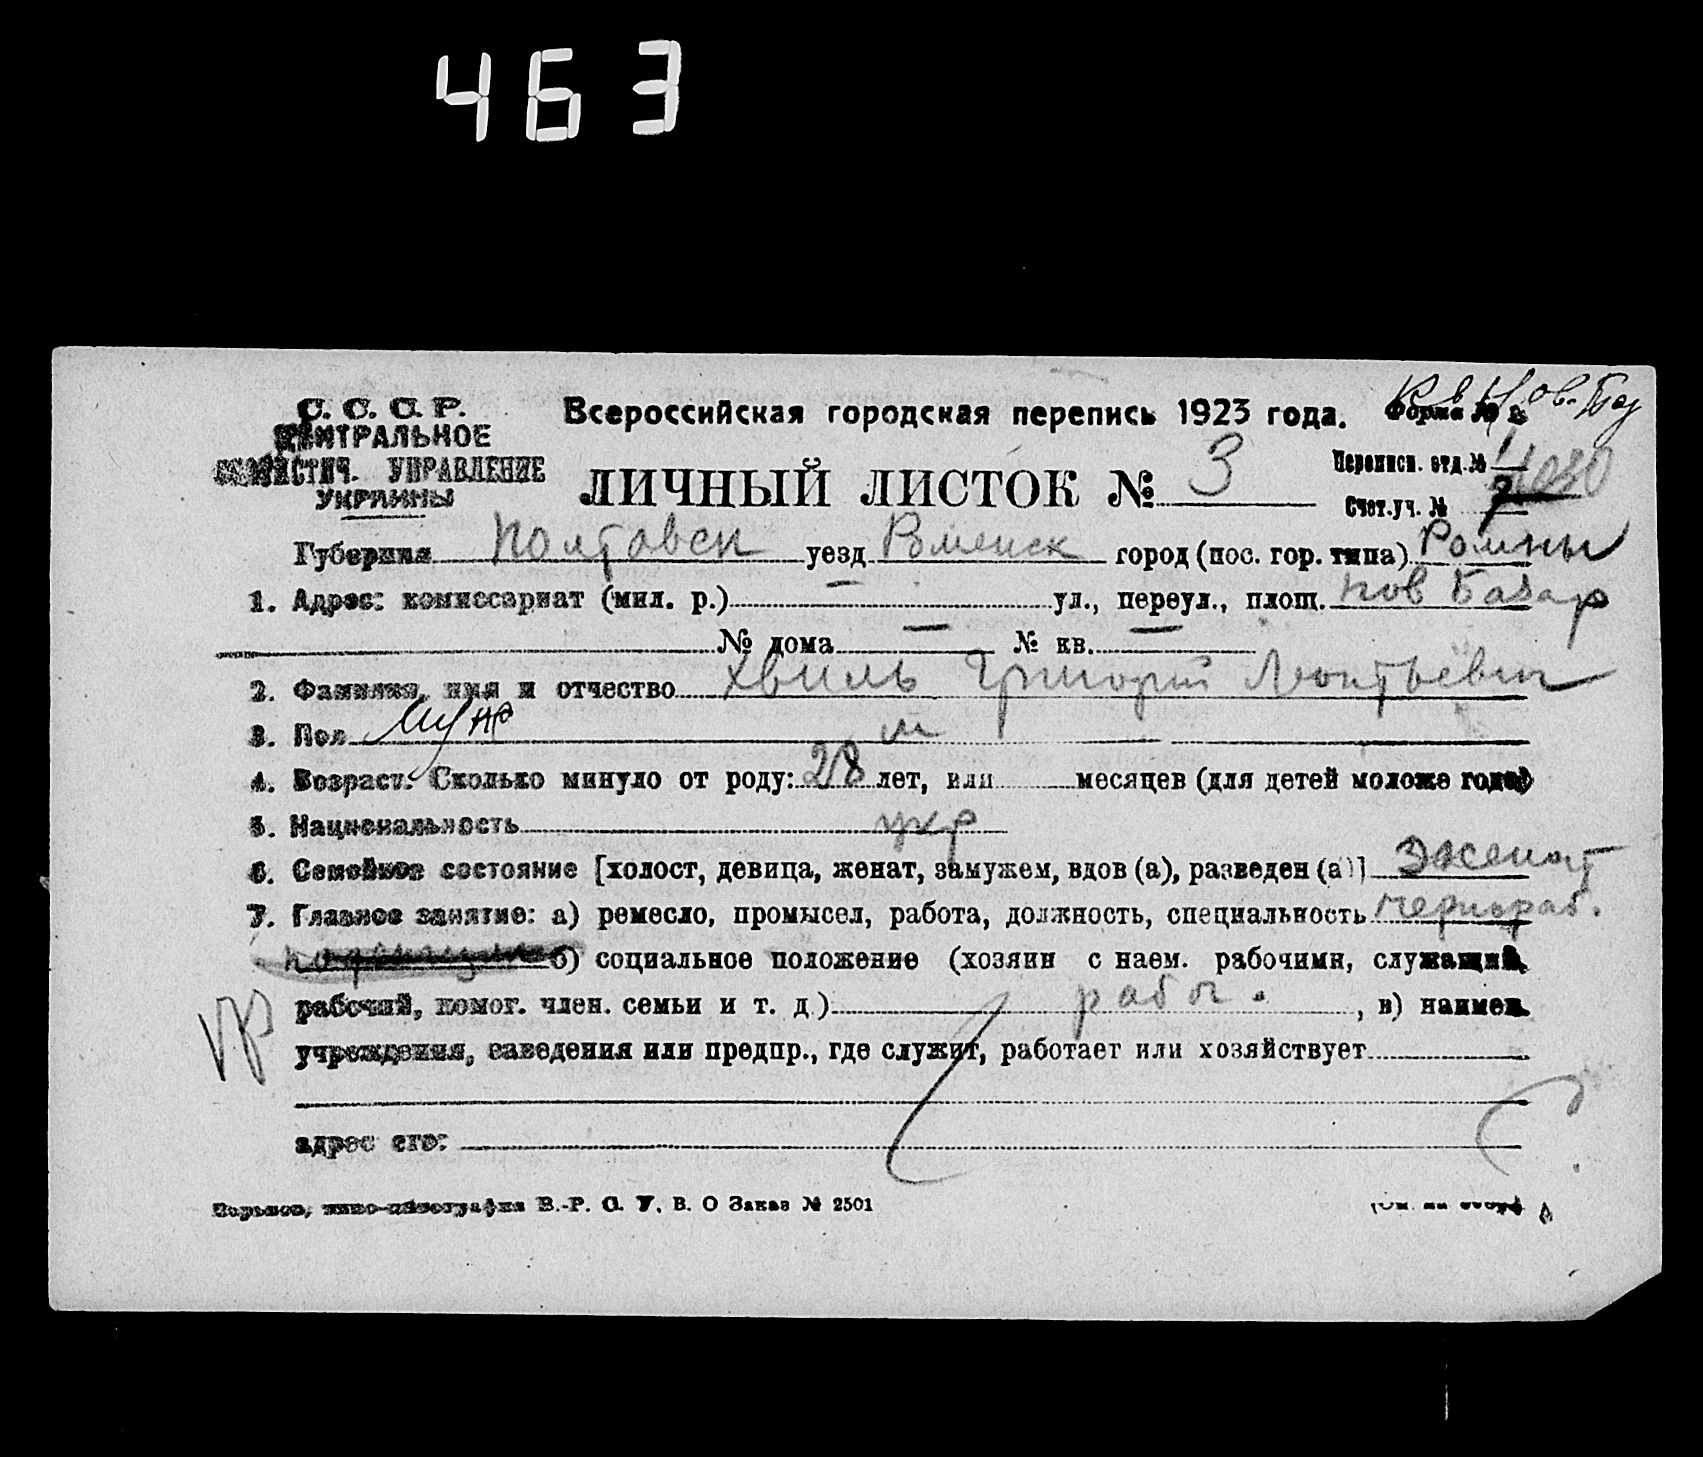 463
С. С. С. Р.
ЦЕНТРАЛЬНОЕ
СТАТИСТИЧ. УПРАВЛЕНИЕ
УКРАИНЫ
Всероссийская городская перепись 1923 года. Форма № 2
ЛИЧНЫЙ ЛИСТОК № 3
Переписн. отд. № 1
Счет. уч. № 7
Губерния Полтавск уезд Роменск город (пос. гор. типа) Ромны
1. Адрес: комиссариат (мил. р.) — ул., переул., площ. Нов Базар
№ дома — № кв. —
2. Фамилия, имя и отчество Хвиль Григорий Леонтьевич
3. Пол муж м
4. Возраст. Сколько минуло от роду: 28 лет, или месяцев (для детей моложе года)
5. Национальность укр
6. Семейное состояние [холост, девица, женат, замужем, вдов (а), разведен (а)] женат
7. Главное занятие: а) ремесло, промысел, работа, должность, специальность чернораб.
б) социальное положение (хозяин с наем. рабочими, служащий,
рабочий, помог. член. семьи и т. д.) рабоч. , в) наимен.
учреждения, заведения или предпр., где служит, работает или хозяйствует
адрес его:
Харьков, типо-цинкография В.-Р. С. У. В. О Заказ № 2501